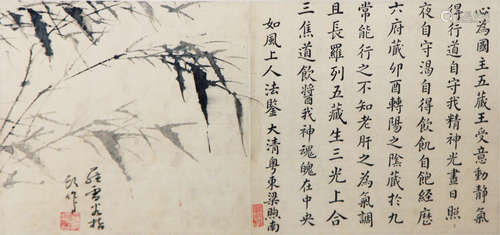 心為國主五藏王受意動靜氣
得行道自守我精神光晝日照
夜自守渴自得飲飢自飽經歷
六府藏卯酉轉陽之陰藏於九
常能行之不知老肝之為氣調
且長羅列五藏生三光上合
三焦道飲醬我神魂魄在中央
如風上人法鑒 大清粵東梁煦南
作